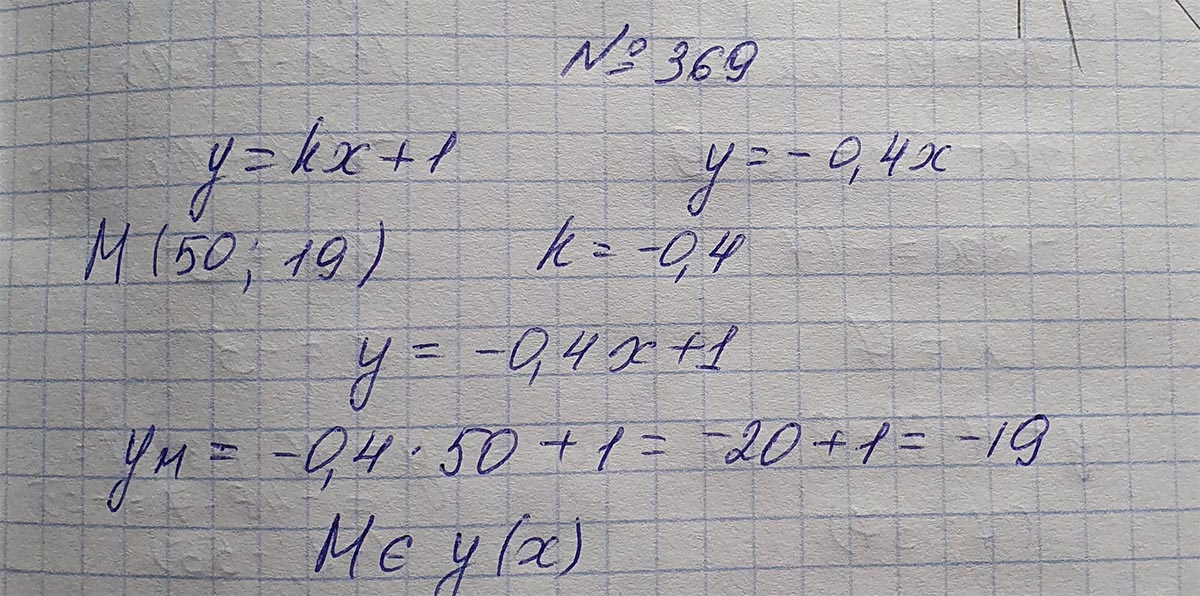 № 369
y = kx + 1 y = - 0,4x
M (50; 19) k = -0,4
y = -0,4x + 1
yм = -0,4 · 50 + 1 = -20 + 1 = -19
M є y(x)